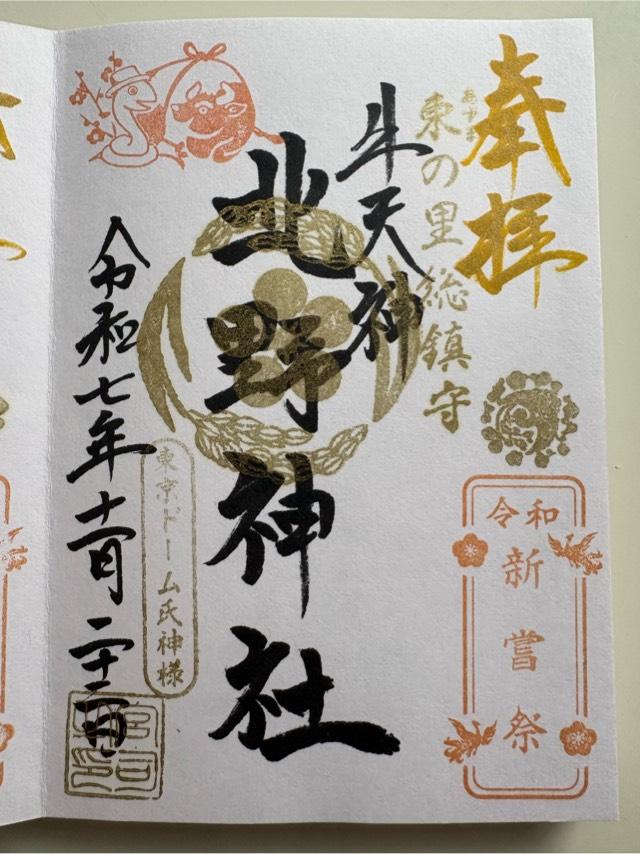 奉拝
あずま
東の里総鎮守
牛天神
北野神社
令和七年十一月二十二日
東京ドーム氏神様
令和
新嘗祭